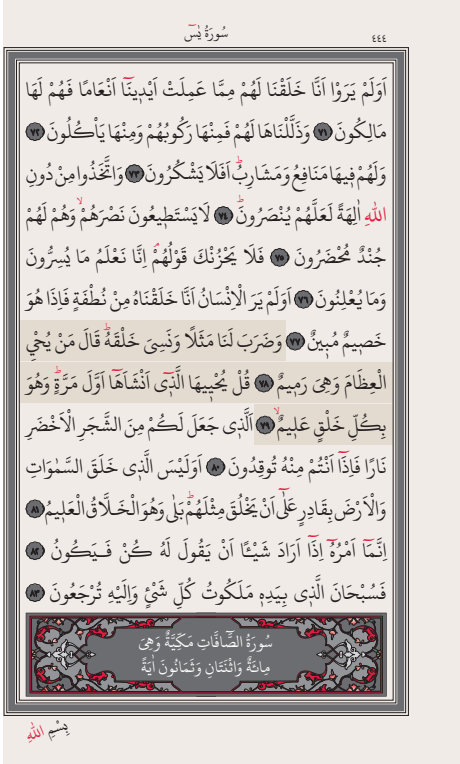 سُورَةُ يٰسٓ
٤٤٤
اَوَلَمْ يَرَوْا اَنَّا خَلَقْنَا لَهُمْ مِمَّا عَمِلَتْ اَيْد۪ينَٓا اَنْعَامًا فَهُمْ لَهَا
مَالِكُونَ ﴿٧١﴾ وَذَلَّلْنَاهَا لَهُمْ فَمِنْهَا رَكُوبُهُمْ وَمِنْهَا يَأْكُلُونَ ﴿٧٢﴾
وَلَهُمْ ف۪يهَا مَنَافِعُ وَمَشَارِبُۜ اَفَلَا يَشْكُرُونَ ﴿٧٣﴾ وَاتَّخَذُوا مِنْ دُونِ
اللّٰهِ اٰلِهَةً لَعَلَّهُمْ يُنْصَرُونَۜ ﴿٧٤﴾ لَا يَسْتَط۪يعُونَ نَصْرَهُمْۙ وَهُمْ لَهُمْ
جُنْدٌ مُحْضَرُونَ ﴿٧٥﴾ فَلَا يَحْزُنْكَ قَوْلُهُمْۢ اِنَّا نَعْلَمُ مَا يُسِرُّونَ
وَمَا يُعْلِنُونَ ﴿٧٦﴾ اَوَلَمْ يَرَ الْاِنْسَانُ اَنَّا خَلَقْنَاهُ مِنْ نُطْفَةٍ فَاِذَا هُوَ
خَص۪يمٌ مُب۪ينٌ ﴿٧٧﴾ وَضَرَبَ لَنَا مَثَلًا وَنَسِيَ خَلْقَهُۜ قَالَ مَنْ يُحْيِ
الْعِظَامَ وَهِيَ رَم۪يمٌ ﴿٧٨﴾ قُلْ يُحْي۪يهَا الَّذ۪ٓي اَنْشَاَهَٓا اَوَّلَ مَرَّةٍۜ وَهُوَ
بِكُلِّ خَلْقٍ عَل۪يمٌۙ ﴿٧٩﴾ اَلَّذ۪ي جَعَلَ لَكُمْ مِنَ الشَّجَرِ الْاَخْضَرِ
نَارًا فَاِذَٓا اَنْتُمْ مِنْهُ تُوقِدُونَ ﴿٨٠﴾ اَوَلَيْسَ الَّذ۪ي خَلَقَ السَّمٰوَاتِ
وَالْاَرْضَ بِقَادِرٍ عَلٰٓى اَنْ يَخْلُقَ مِثْلَهُمْۜ بَلٰى وَهُوَ الْخَلَّاقُ الْعَل۪يمُ ﴿٨١﴾
اِنَّمَٓا اَمْرُهُٓ اِذَٓا اَرَادَ شَيْـًٔا اَنْ يَقُولَ لَهُ كُنْ فَيَكُونُ ﴿٨٢﴾
فَسُبْحَانَ الَّذ۪ي بِيَدِه۪ مَلَكُوتُ كُلِّ شَيْءٍ وَاِلَيْهِ تُرْجَعُونَ ﴿٨٣﴾
سُورَةُ الصَّٓافَّاتِ مَكِّيَّةٌ وَهِيَ
مِائَةٌ وَاثْنَتَانِ وَثَمَانُونَ اٰيَةً
بِسْمِ اللّٰهِ